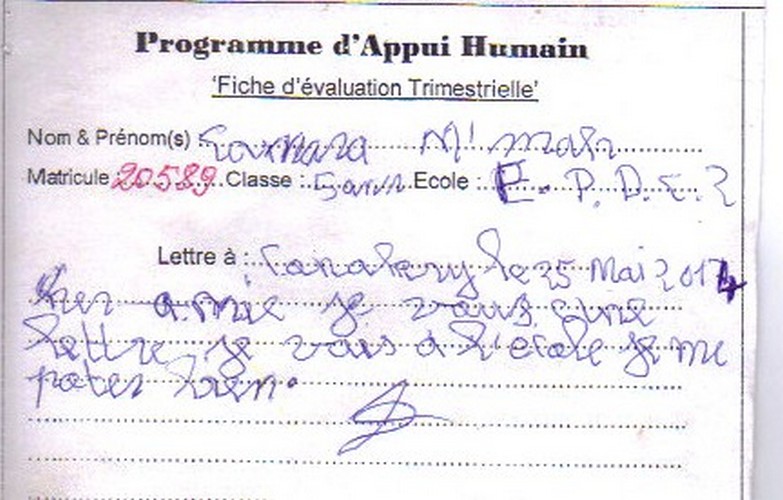 Programme d'Appui Humain
'Fiche d'évaluation Trimestrielle'
Nom & Prénom(s) : Camara M'mah
Matricule 20589 Classe : 5ann Ecole : E. P. D. E. 2
Lettre à : Canakery le 25 Mai 2014
Cher amie je vous
lettre je vais à l'ecole je me
poter bien.